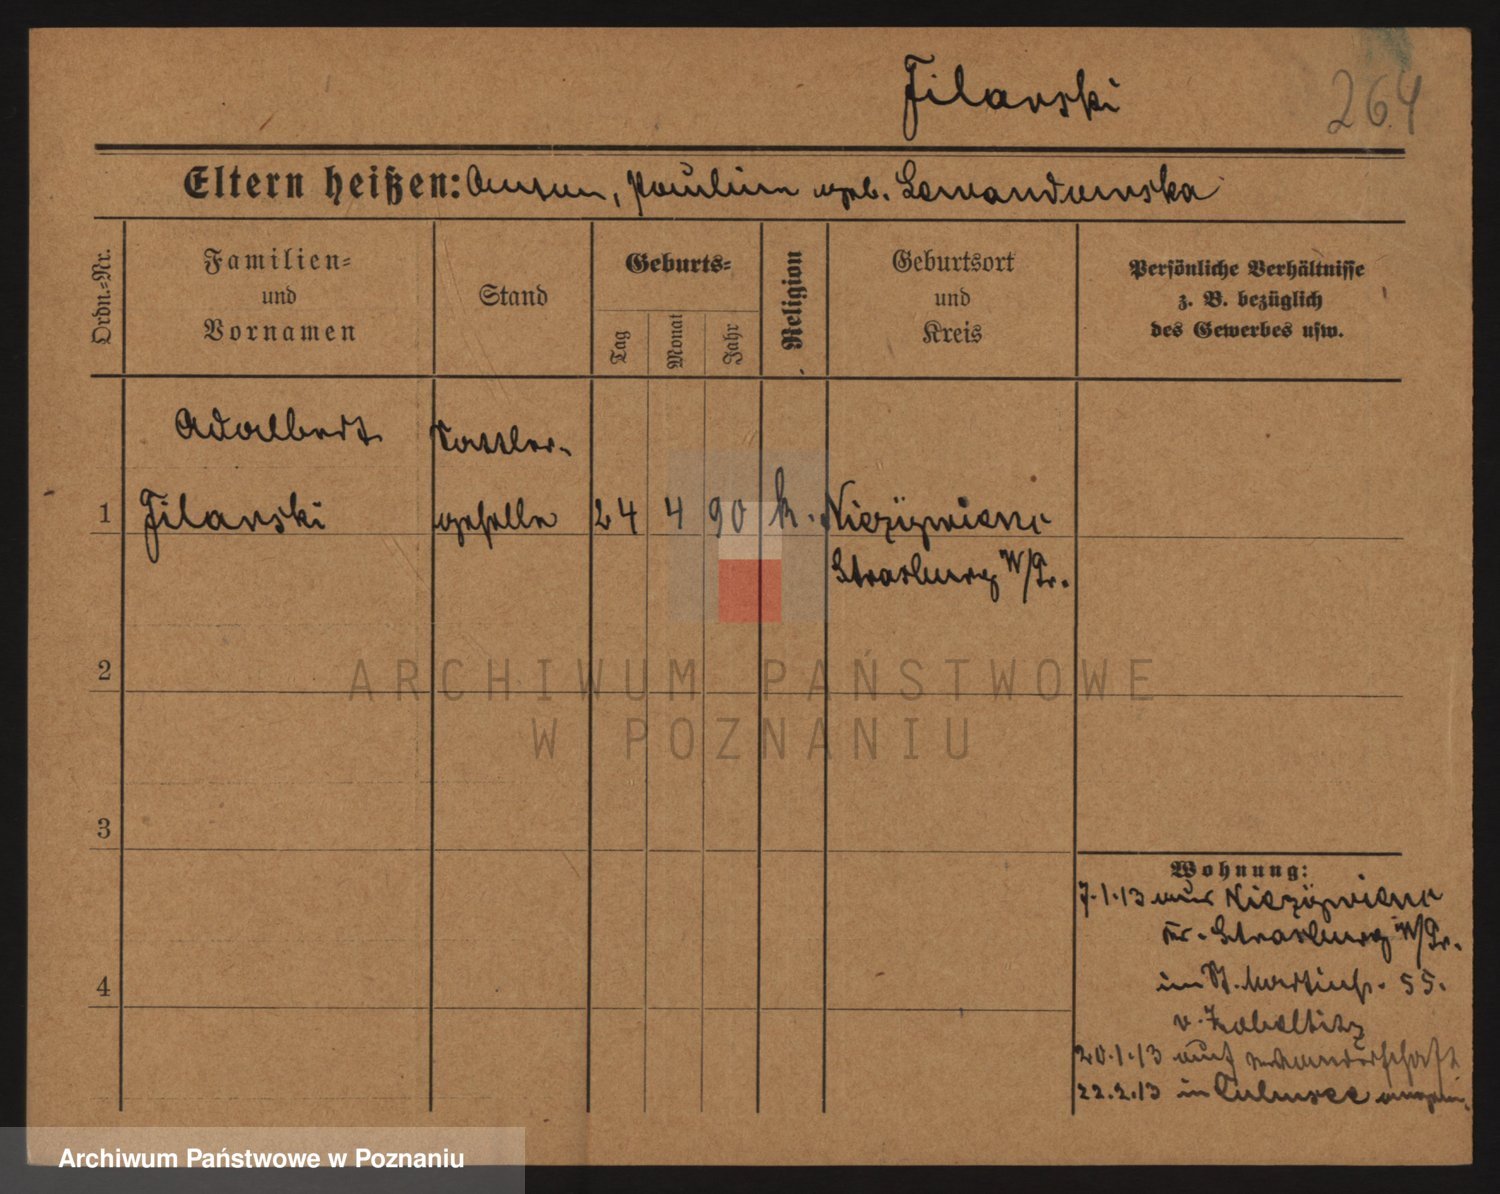 Filarski
264
Eltern heißen: Anton, Paulina geb. Lewandowska
Ordn.-Nr.
Familien-
und
Vornamen
Stand
Geburts-
Tag
Monat
Jahr
Religion
Geburtsort
und
Kreis
Persönliche Verhältnisse
z. B. bezüglich
des Gewerbes usw.
Adalbert Sattler-
1 Filarski geselle 24 4 90 k. Niezÿwienc
Strasburg W/Pr.
2
ARCHIWUM PAŃSTWOWE
W POZNANIU
3
4
Wohnung:
7.1.13 aus Niezÿwienc
Kr. Strasburg W/Pr.
St. Martinstr. 55.
v.
20.1.13 auf Wanderschaft
22.2.13 in Culmsee
Archiwum Państwowe w Poznaniu